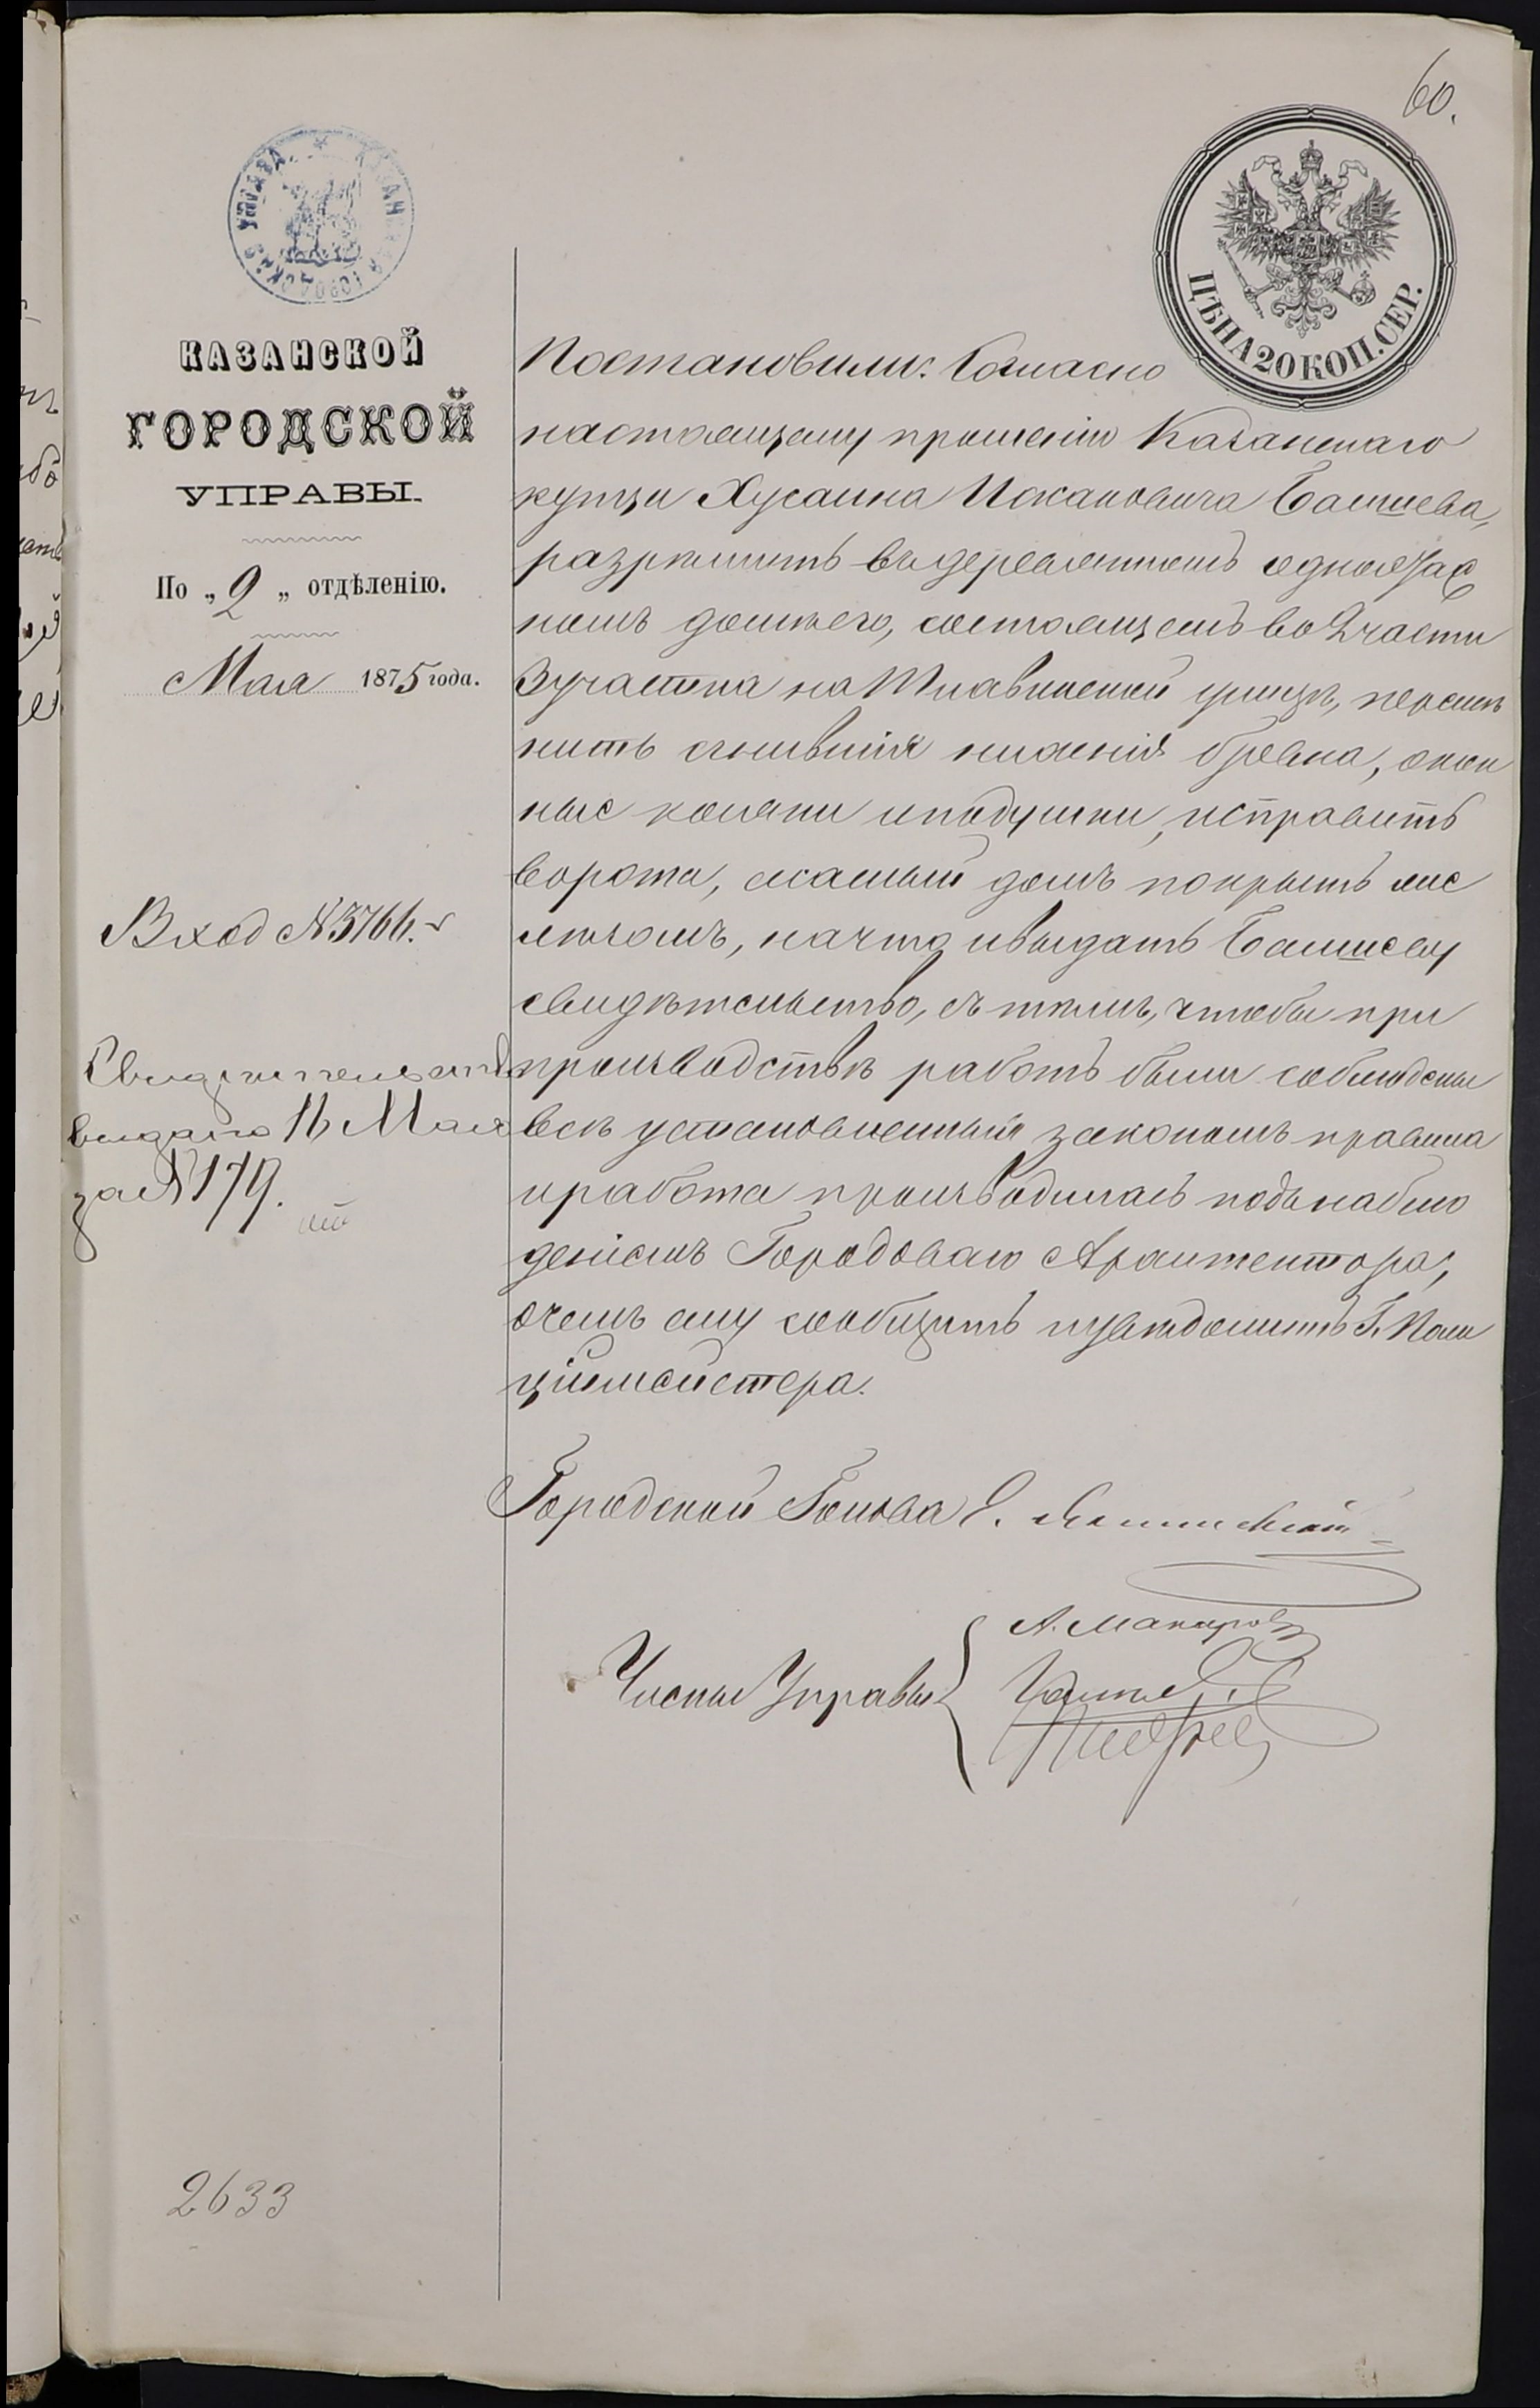 60.
КАЗАНСКАЯ ГОРОДСКАЯ УПРАВА
ЦѢНА 20 КОП. СЕР.
КАЗАНСКОЙ
ГОРОДСКОЙ
УПРАВЫ.
По „2„ отдѣленію.
Мая 1875 года.
Вход № 3766.
Свидѣтельство
выдано 16 Мая
за № 179.
2633
Постановили: Согласно
настоящему прошенію Казанскаго
купца Хусаина Исхаковича Башева,
разрѣшить въ деревянномъ одноэтаж
номъ домѣ его, состоящемъ во 2 части
3 участка на улицѣ, перемѣ
нить сгнившія нижнія бревна, окон
ные косяки и подушки, исправить
ворота, а самый домъ покрыть
на что и выдать
свидѣтельство, съ тѣмъ, чтобы при
производствѣ работъ были соблюдены
всѣ установленныя закономъ правила
и работа производилась подъ наблю
деніемъ Городоваго Архитектора,
о чемъ ему сообщить и увѣдомить Г. Поли
ціймейстера.
Городской Голова Е.
Члены Управы
А. Макаровъ